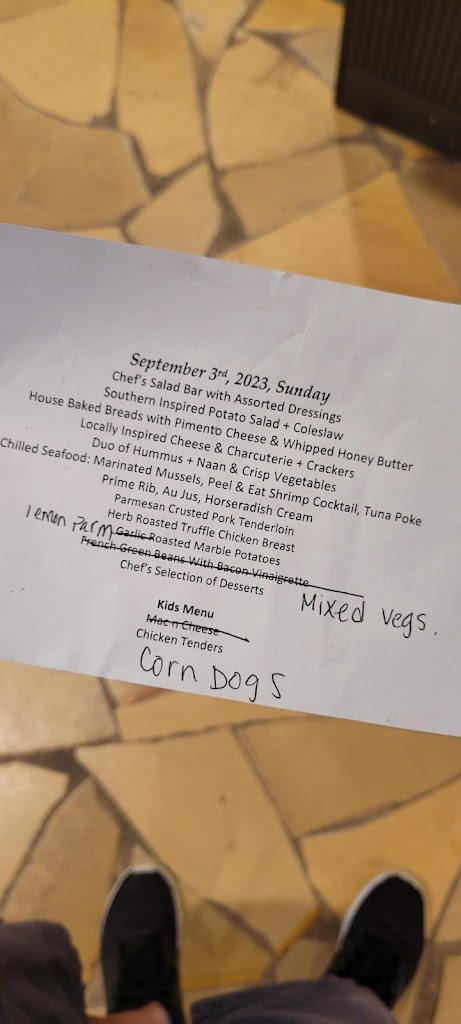 September 3rd, 2023, Sunday
Chef's Salad Bar with Assorted Dressings
Southern Inspired Potato Salad + Coleslaw
House Baked Breads with Pimento Cheese & Whipped Honey Butter
Locally Inspired Cheese & Charcuterie + Crackers
Duo of Hummus + Naan & Crisp Vegetables
Chilled Seafood: Marinated Mussels, Peel & Eat Shrimp Cocktail, Tuna Poke
Prime Rib, Au Jus, Horseradish Cream
Parmesan Crusted Pork Tenderloin
Herb Roasted Truffle Chicken Breast
lemon Parm Garlic Roasted Marble Potatoes
French Green Beans With Bacon Vinaigrette
Mixed Vegs.
Chef's Selection of Desserts
Kids Menu
Mac n Cheese
Chicken Tenders
Corn Dogs